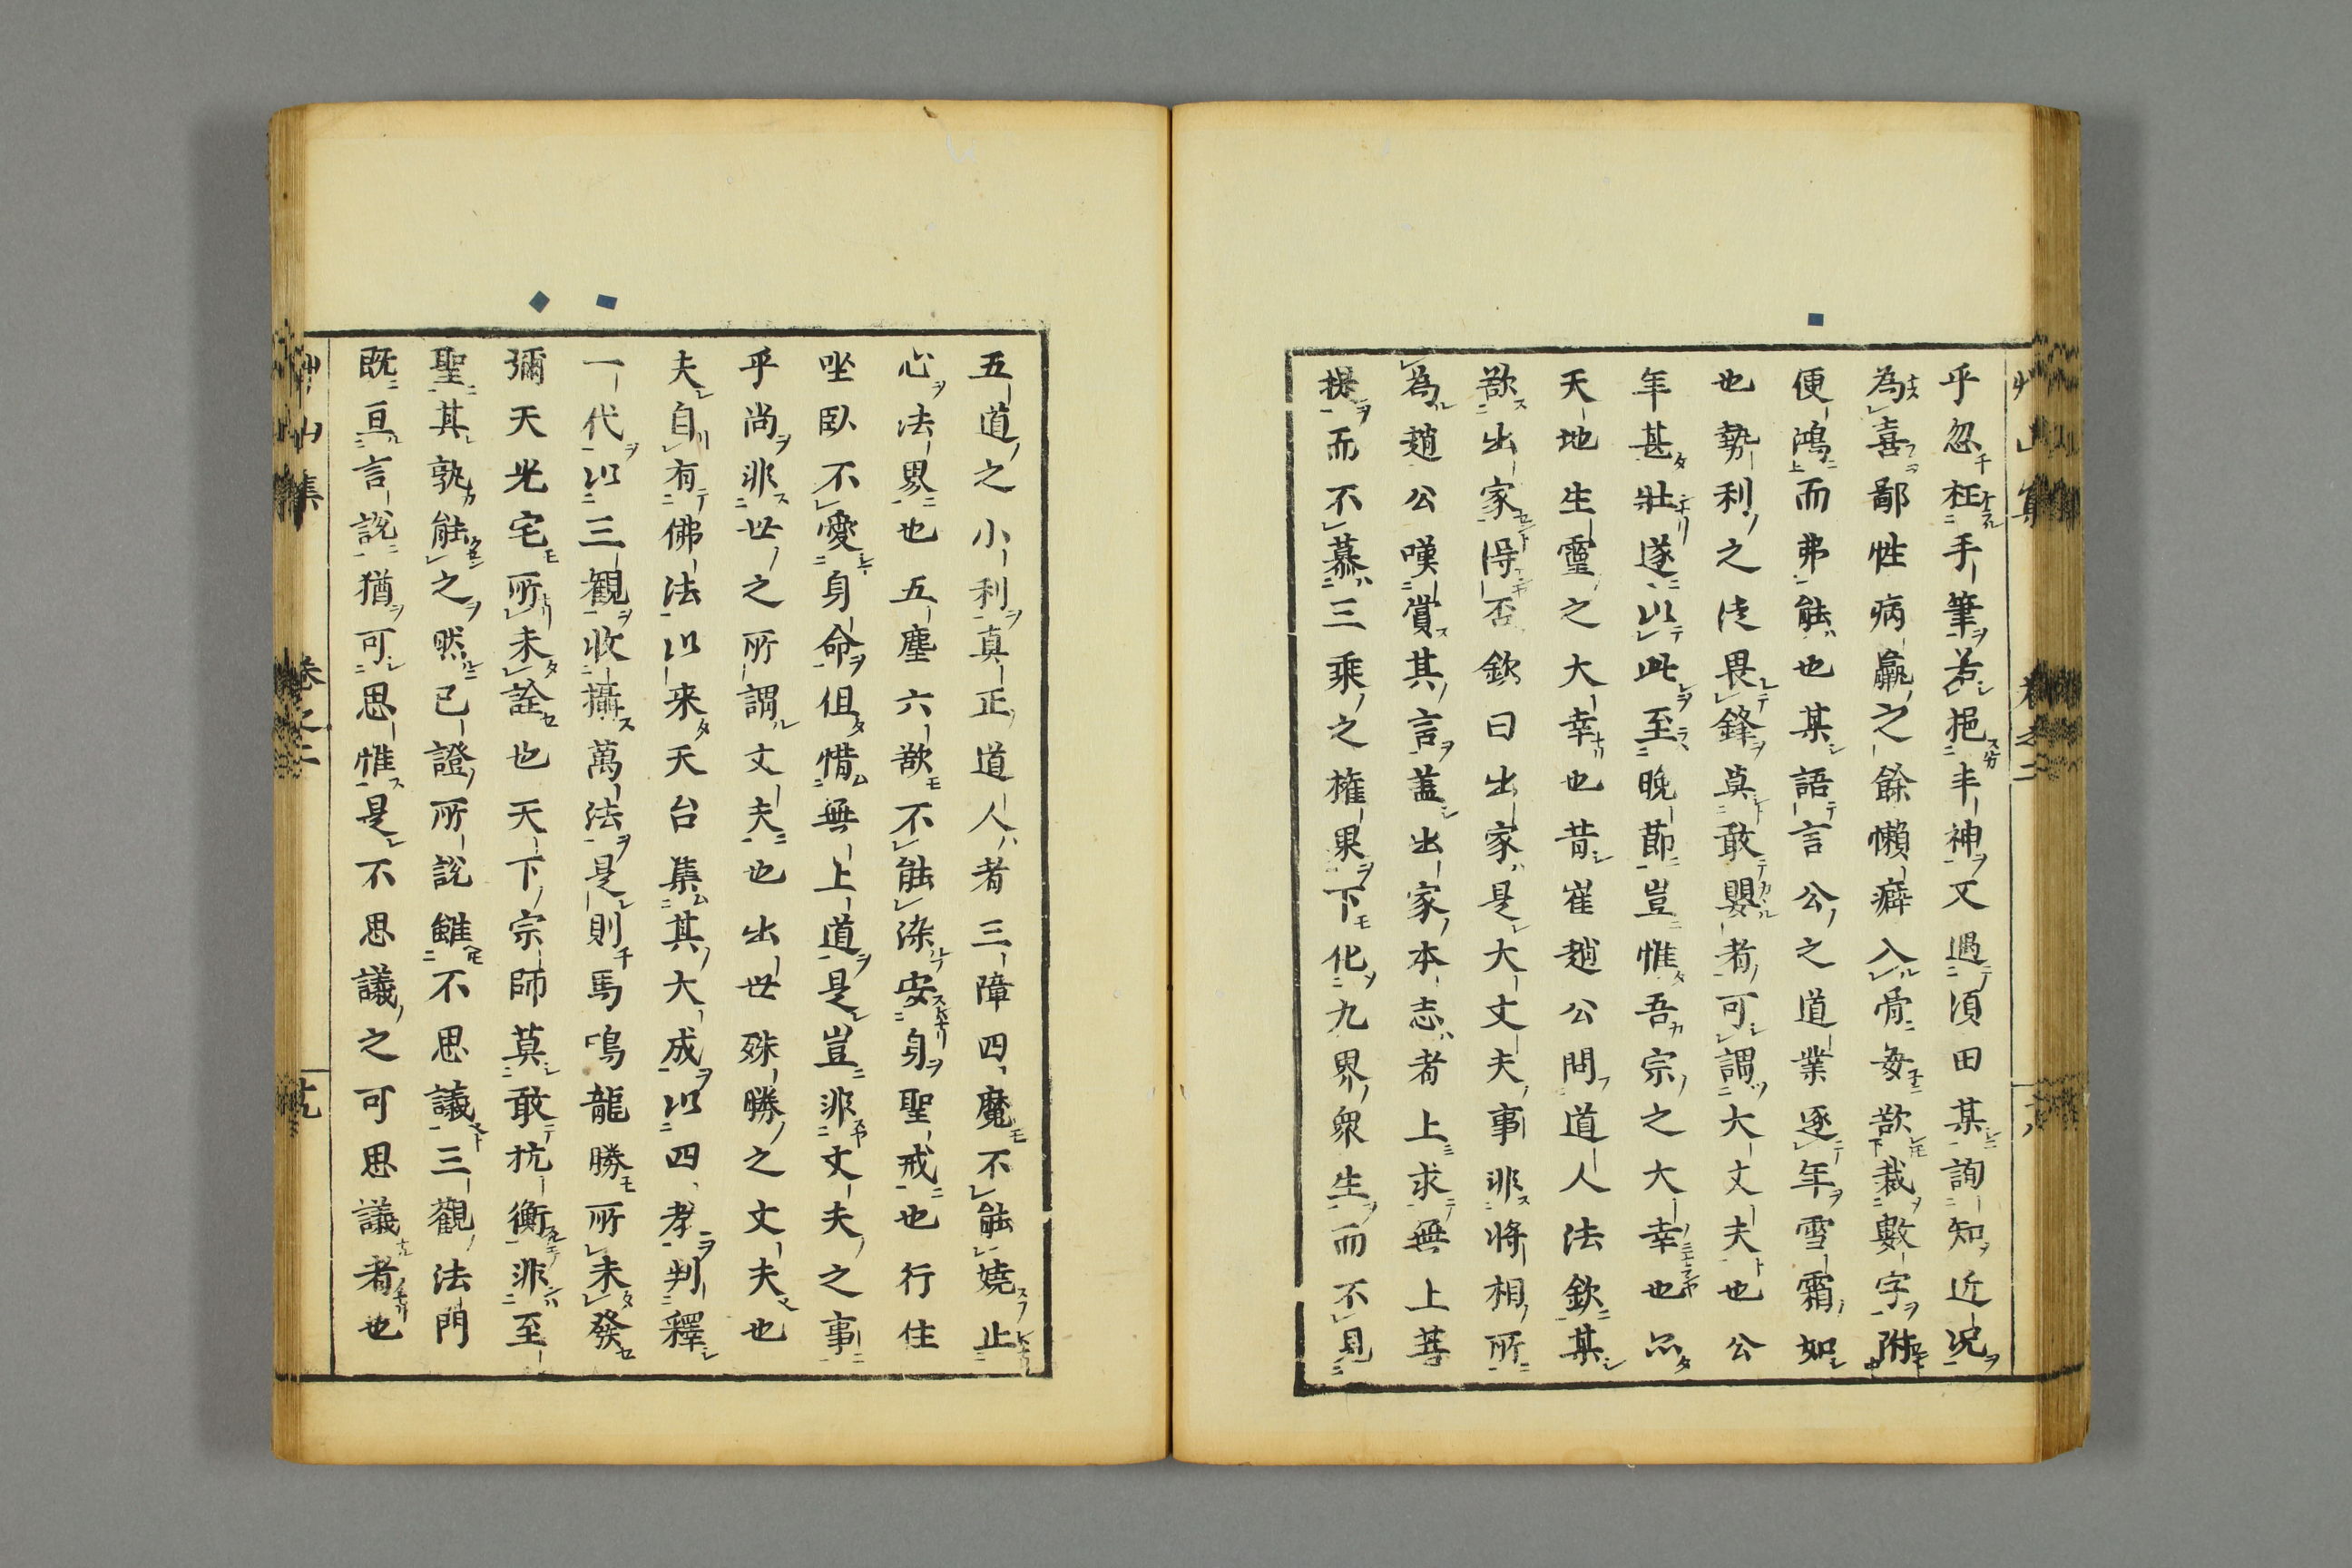 乎忽枉手筆若挹丰神又過須田某詢知近況
為喜鄙性病羸之餘懶癖入骨每欲裁數字附
便鴻而弗能也某語言公之道業逐年雪霜如
也勢利之徒畏鋒莫敢嬰者可謂大丈夫也公
年甚壯遂以此至晚節豈惟吾宗之大幸也亦
天地生靈之大幸也昔崔趙公問道人法欽某
欲出家得否欽曰出家是大丈夫事非將相所
為趙公嘆賞其言蓋出家本志者上求無上菩
提而不慕三乘之權果下化九界衆生而不見
五道之小利真正道人者三障四魔不能嬈止
心法界也五塵六欲不能染安身聖戒也行住
坐臥不愛身命但惜無上道是豈非丈夫之事
乎尚非世之所謂丈夫也出世殊勝之丈夫也
夫自有佛法以来天台集其大成以四孝判釋
一代以三觀收攝萬法是則馬鳴龍勝所未發
彌天光宅所未詮也天下宗師莫敢抗衡非至
聖其孰能之然已證所說雖不思議三觀法門
既亘言說猶可思惟是不思議之可思議者也
艸山集
卷之二
十九